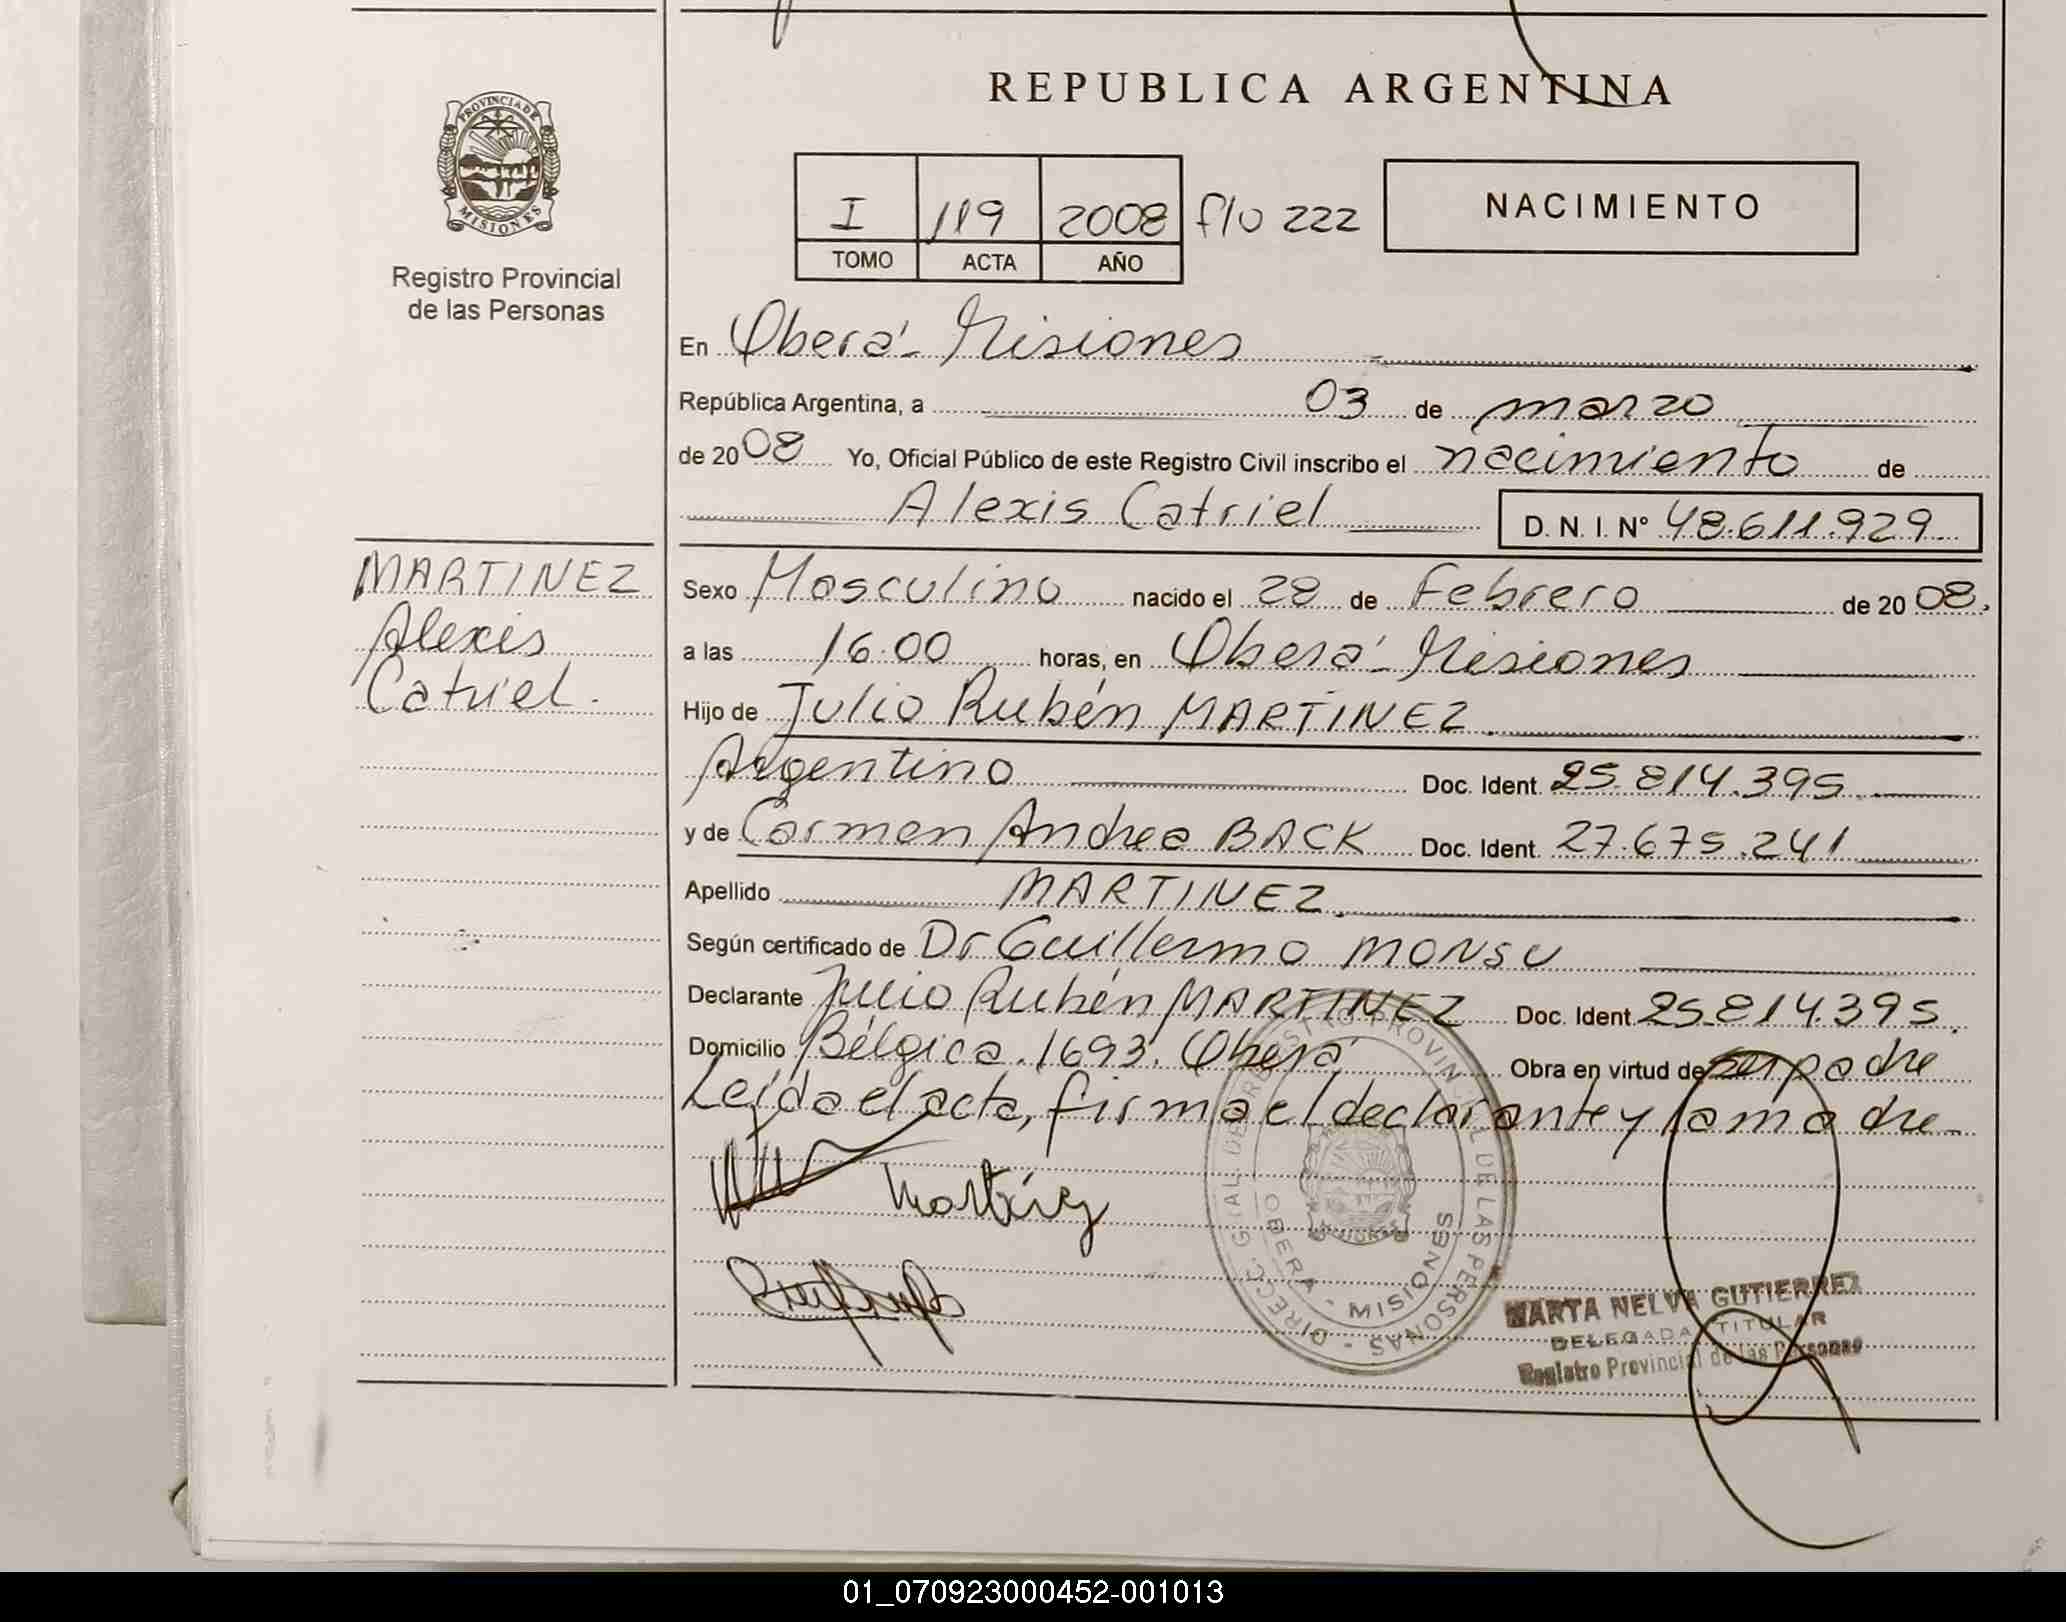 REPUBLICA ARGENTINA
PROVINCIA DE MISIONES
Registro Provincial
de las Personas
I 119 2008 f/o 222
TOMO ACTA AÑO
NACIMIENTO
En Oberá - Misiones
República Argentina, a 03 de marzo
de 2008 Yo, Oficial Público de este Registro Civil inscribo el nacimiento de
Alexis Catriel D. N. I. Nº 48.611.929
MARTINEZ
Alexis
Catriel.
Sexo Masculino nacido el 28 de Febrero de 2008.
a las 16.00 horas, en Oberá - Misiones
Hijo de Julio Rubén MARTINEZ
Argentino Doc. Ident. 25.814.395
y de Carmen Andrea BACK Doc. Ident. 27.675.241
Apellido MARTINEZ.
Según certificado de Dr Guillermo MONSU
Declarante Julio Rubén MARTINEZ Doc. Ident. 25.814.395.
Domicilio Bélgica. 1693. Oberá Obra en virtud de ser padre
Leída el acta, firma el declarante y la madre-
Martínez
DIRECC. GRAL. DE REGISTRO PROVINCIAL DE LAS PERSONAS -
OBERA - MISIONES
MARTA NELVA GUTIERREZ
DELEGADA TITULAR
Registro Provincial de las Personas
01_070923000452-001013